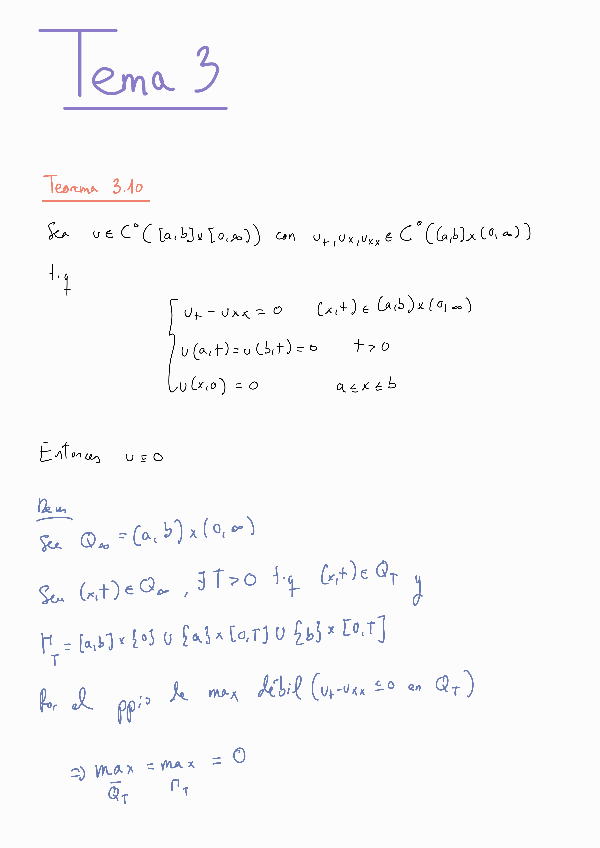 Tema 3
Teorema 3.10
Sea u ∈ C⁰([a,b]×[0,∞)) con u_t, u_x, u_xx ∈ C⁰((a,b]×(0,∞))
t.q
u_t - u_xx = 0 (x,t) ∈ (a,b)×(0,∞)
u(a,t) = u(b,t) = 0 t > 0
u(x,0) = 0 a ≤ x ≤ b
Entonces u ≡ 0
Dem
Sea Q_∞ = (a,b)×(0,∞)
Sea (x,t) ∈ Q_∞, ∃ T > 0 t.q (x,t) ∈ Q_T y
Γ_T = [a,b]×{0} ∪ {a}×[0,T] ∪ {b}×[0,T]
Por el ppio de max débil (u_t - u_xx ≤ 0 en Q_T)
⇒ max_{Q̅_T} = max_{Γ_T} = 0